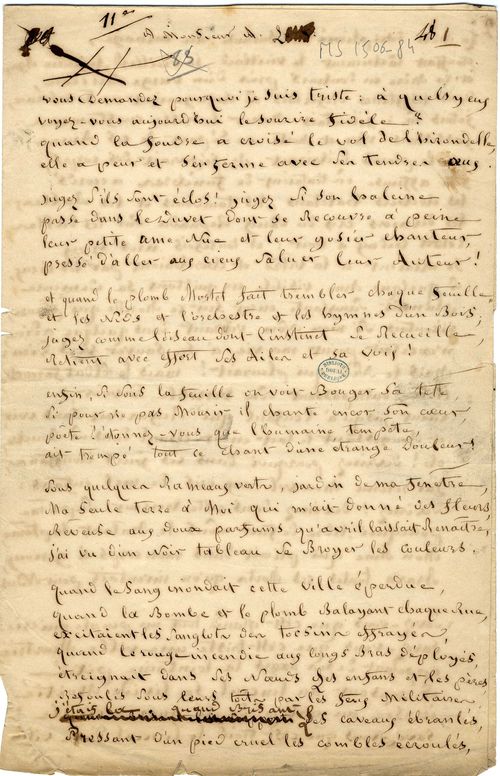 11e
A Monsieur A. L
MS 1506-84
481
83
vous Demandez pourquoi je suis triste : à quels yeux
voyez-vous aujourd'hui le sourire fidèle ?
quand la foudre a croisé le vol de l'hirondelle,
elle a peur et s'enferme avec ses tendres œufs.
jugez s'ils sont éclos ! jugez si son haleine
passe dans le duvet dont se recouvre à peine
leur petite ame Nue et leur gosier chanteur,
pressé d'aller aux cieux saluer leur Auteur !
et quand le plomb Mortel fait trembler chaque feuille
et les Nids et l'orchestre et les hymnes d'un Bois,
jugez comme l'oiseau dont l'instinct se Recueille,
Retient avec effort ses ailes et sa voix !
enfin, si sous la feuille on voit Bouger sa tête,
si pour ne pas Mourir il chante encor son cœur,
poëte ! étonnez-vous que l'humaine tempête,
ait trempé tout ce chant d'une etrange Douleur !
Sous quelques Rameaux verts, jardin de ma fenêtre,
Ma seule terre à Moi qui m'ait donné des fleurs,
Rêveuse aux doux parfums qu'avril laissait Renaître,
j'ai vu d'un Noir tableau se Broyer les couleurs.
quand le sang inondait cette ville éperdue,
quand la Bombe et le plomb Balayant chaque Rue,
excitaient les sanglots des tocsins effrayés,
quand le rouge incendie aux longs Bras déployés,
etreignait dans ses Nœuds les enfans et les pères
Refoulés sous leurs toits par les feux Militaires,
j'étais là quand Brisant les caveaux ébranlés,
Pressant d'un pied cruel les combles écroulés,
BIBLIOTH
DOUAI